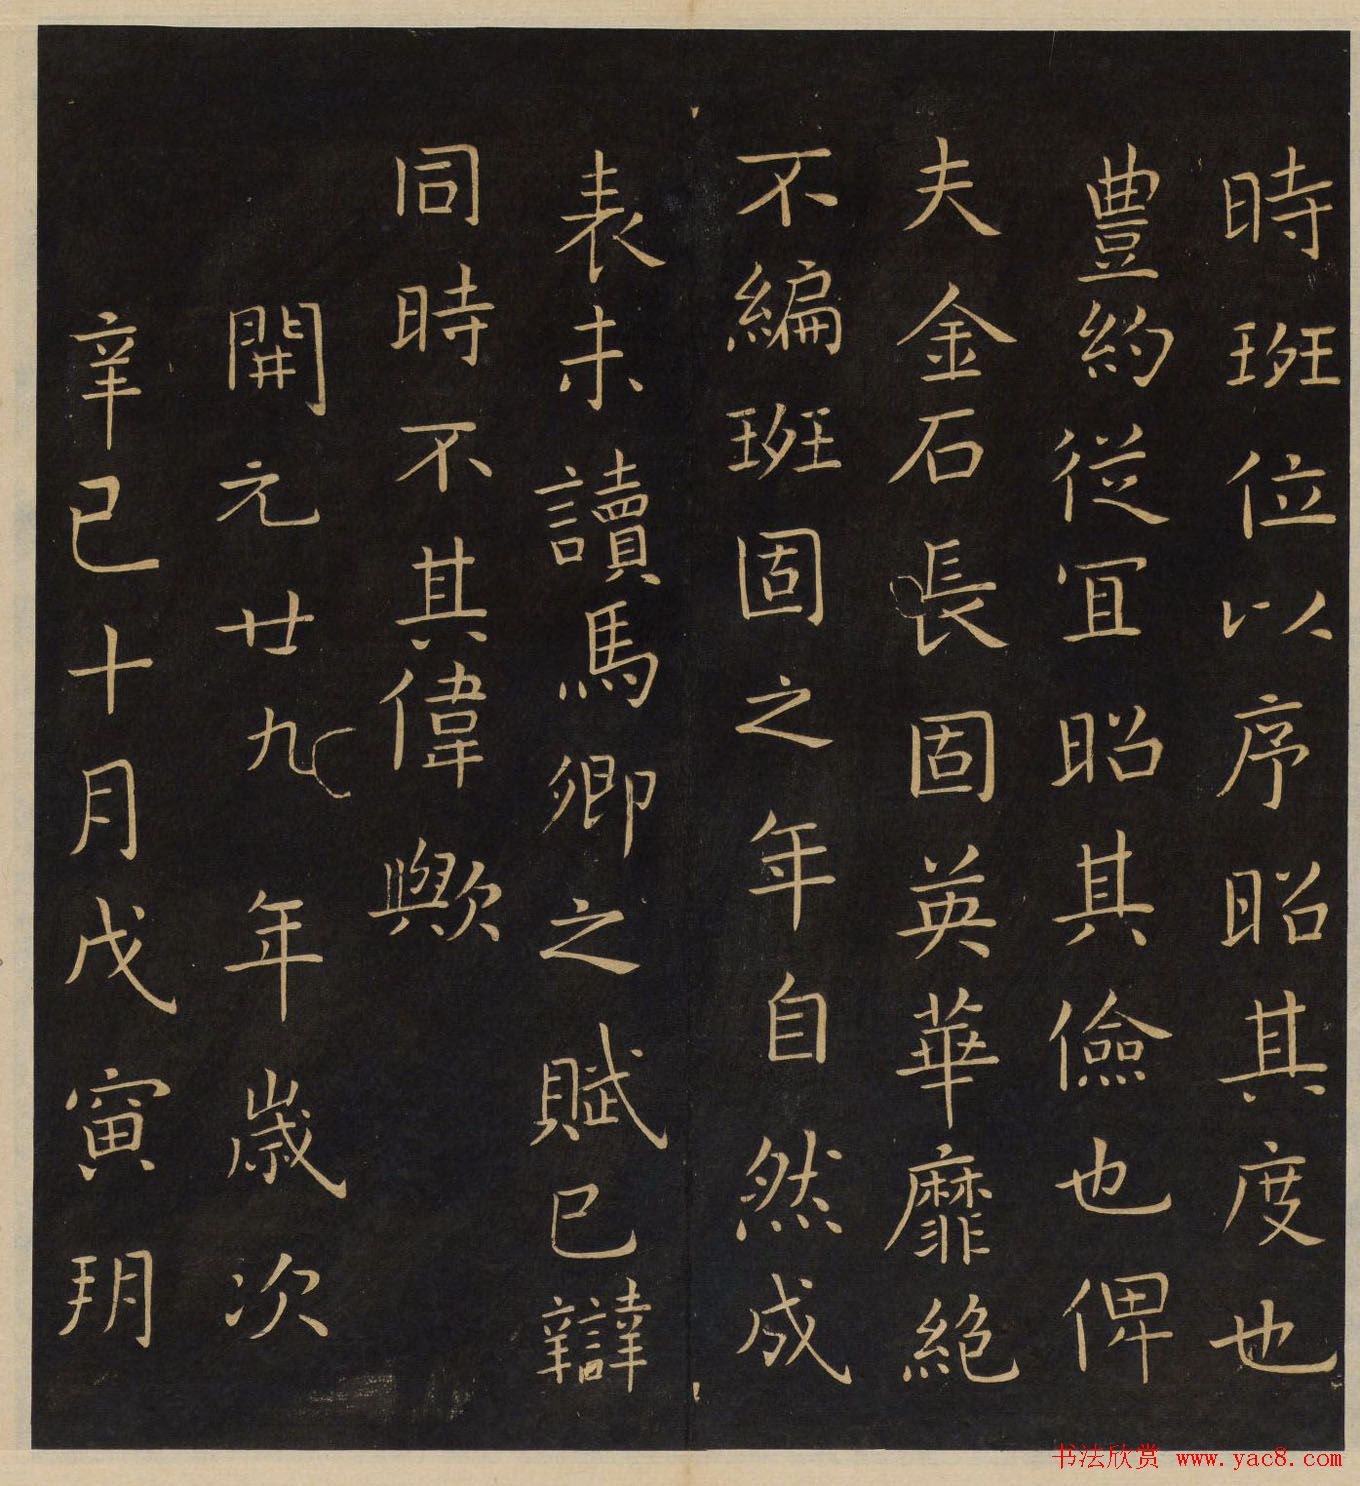 時班位以序昭其度也
豊約從冝昭其儉也俾
夫金石長固英華靡絶
不編班固之年自然成
表未讀馬卿之賦已辯
同時不其偉歟
開元廿九年歲次
辛巳十月戊寅玥
书法欣赏 www.yac8.com